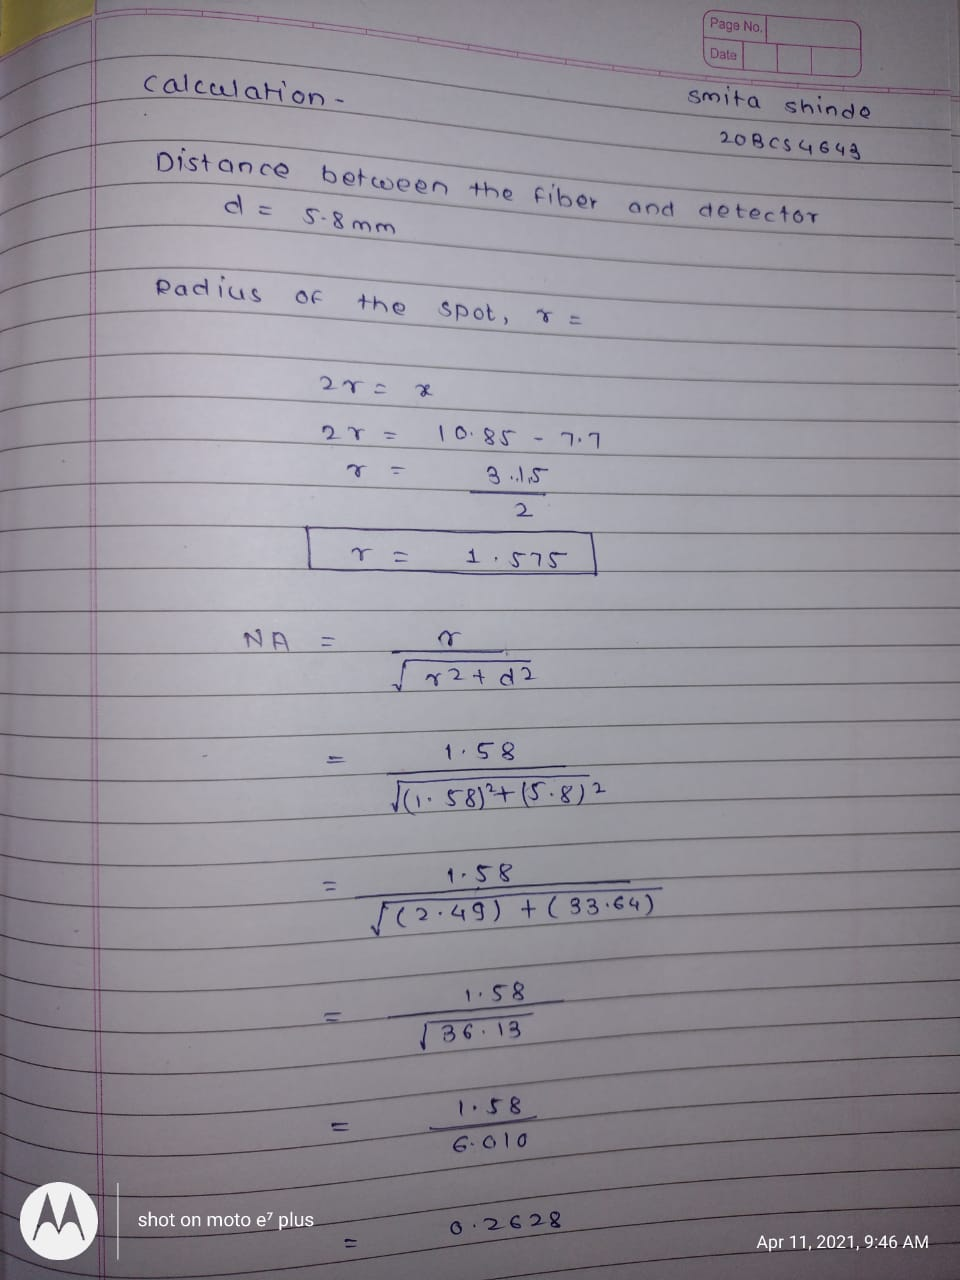 Page No.
Date
calculation -
smita shinde
20BCS4643
Distance between the fiber and detector
d = 5.8mm
Radius of the spot, r =
2r = x
2r = 10.85 - 7.7
r = 3.15
2
r = 1.575
NA = r
√r2 + d2
= 1.58
√(1.58)²+(5.8)²
= 1.58
√(2.49) + (33.64)
= 1.58
√36.13
= 1.58
6.010
= 0.2628
shot on moto e⁷ plus
Apr 11, 2021, 9:46 AM